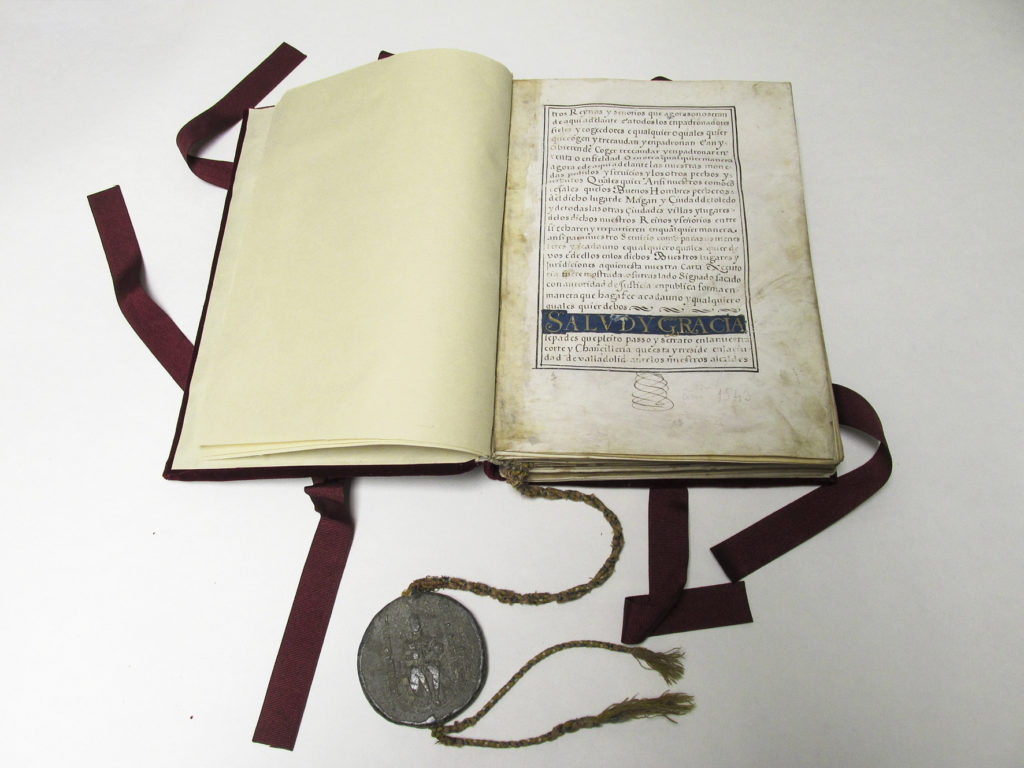 tros Reynos y señorios que agora son o seran
de aqui adelante Ea todos los enpadronadores
fieles y cogedores e qualquier o quales quier
que cogen y rrecaudan y enpadronan E an y
obieren de Coger e rrecaudar y enpadronar en
rrenta o en fieldad O en otra qual quier manera
agora e de aqui adelante las nuestras mone
das pedidos y servicios y los otros pechos y
Quales quier Ansi nuestros como
quelos Buenos Hombres pecheros
del dicho lugar de Magan y Ciudad de toledo
y de todas las otras Ciudades villas y lugares
delos dichos nuestros Reinos y señorios entre
si echaren y rrepartieren en qualquier manera
ansi para nuestro Servicio como para sus menes
teres y a cada uno e qualquier o quales quier de
vos e de ellos en los dichos Buestros lugares y
Juridiciones a quien esta nuestra Carta Executo
ria fuere mostrada o su traslado Signado sacado
con autoridad de Justicia en publica forma en
manera que haga fee a cada uno y qualquier o
quales quier de bos
SALVD Y GRACIA
sepades que pleito passo y se trato en la nuestra
corte y Chancilleria que esta y rreside en la viu
dad de valladolid ante los nuestros alcaldes
año 1540